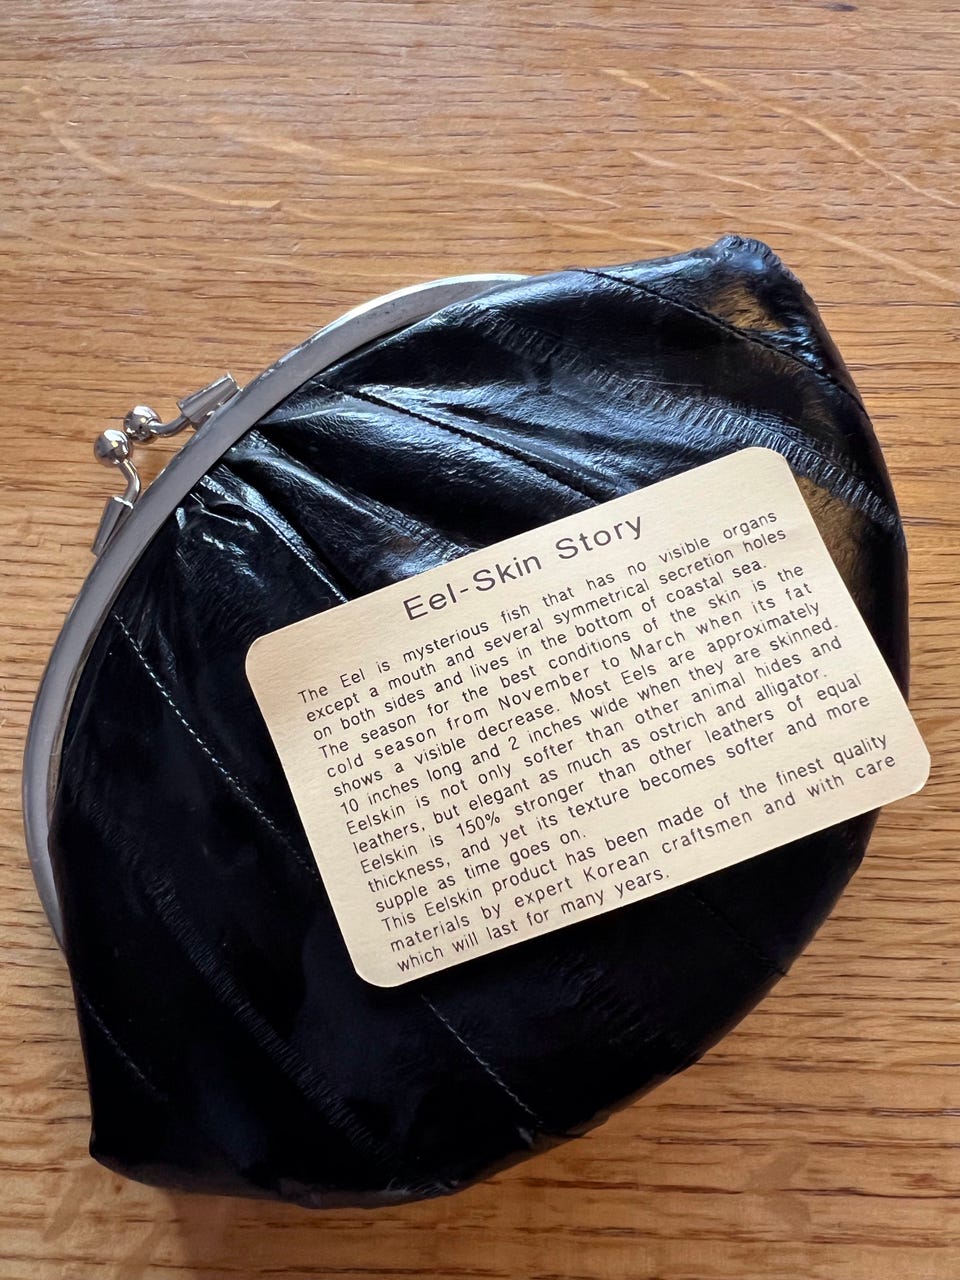 Eel-Skin Story
The Eel is mysterious fish that has no visible organs
except a mouth and several symmetrical secretion holes
on both sides and lives in the bottom of coastal sea.
The season for the best conditions of the skin is the
cold season from November to March when its fat
shows a visible decrease. Most Eels are approximately
10 inches long and 2 inches wide when they are skinned.
Eelskin is not only softer than other animal hides and
leathers, but elegant as much as ostrich and alligator.
Eelskin is 150% stronger than other leathers of equal
thickness, and yet its texture becomes softer and more
supple as time goes on.
This Eelskin product has been made of the finest quality
materials by expert Korean craftsmen and with care
which will last for many years.